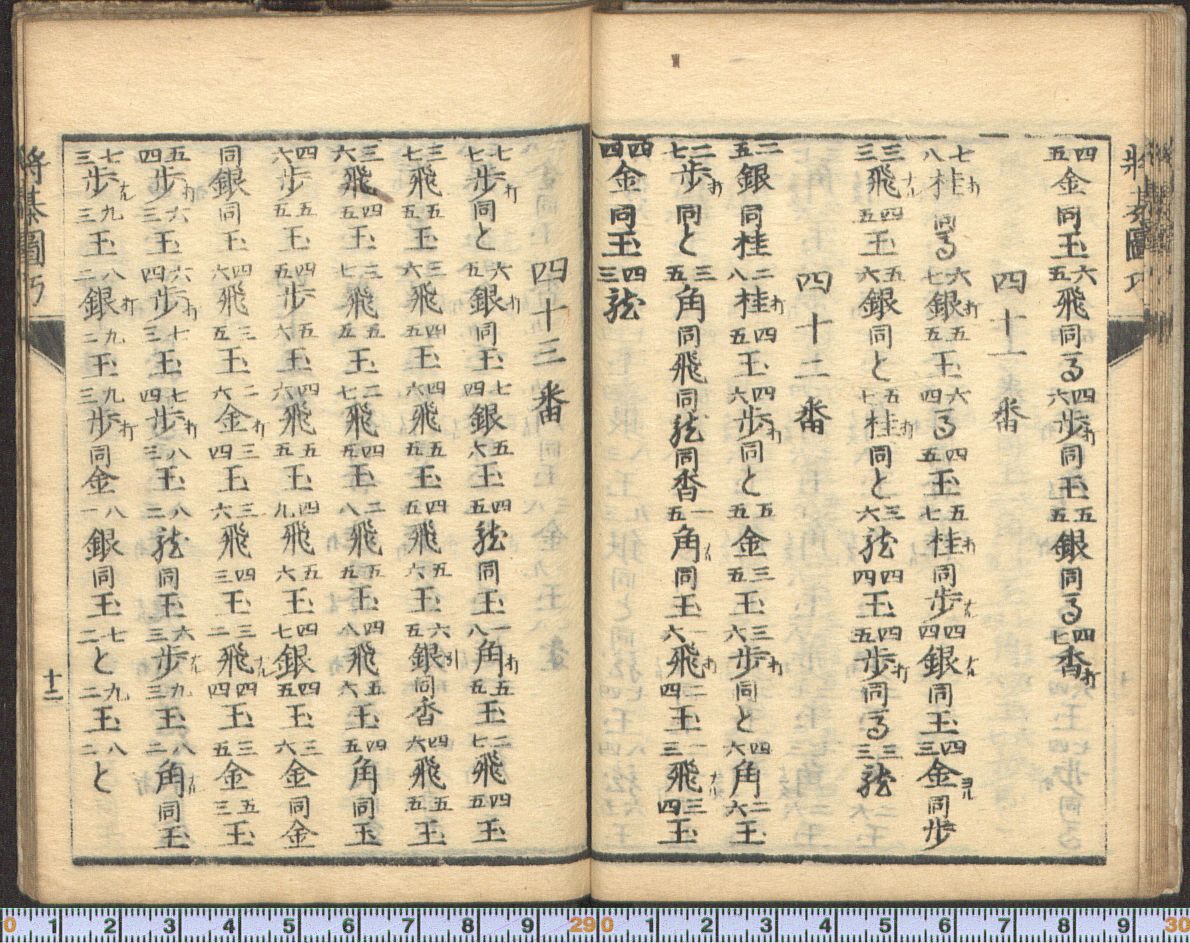 四五金同玉六五飛同馬四六歩打同玉五五銀同馬四七香打
四十一番
七八桂打同馬六七銀打五五玉六四馬四五玉五七桂打同歩ナル四四銀ナル同玉四三金ヨル同歩
三三飛ナル四五玉五六銀同と五七桂打同と三六龍四四玉四五歩打同馬三三龍
四十二番
二五銀同桂二八桂打四五玉四六歩打同と五五金三五玉三六歩打同と四六角二六玉
二七歩打同と三五角同飛同龍同香一五角ナル同玉一六飛打二四玉二三飛ナル三四玉
四四金同玉四三龍
四十三番
七七歩打同と六五銀打同玉七四銀五六玉四五龍同玉一八角打五五玉二七飛四五玉
三七飛五五玉三六飛四五玉四六飛五五玉四五飛五六玉六五銀引同香四六飛五五玉
三六飛四五玉三七飛五五玉二七飛四五玉二八飛五五玉四八飛五六玉四五角同玉
四六歩五五玉四五歩五六玉四六飛五五玉四九飛五六玉四七銀四五玉三六金同金
同銀同玉四六飛三五玉二六金打三四玉三六飛四三玉三二飛ナル四四玉三五金五三玉
五四歩打六三玉六四歩打七三玉七四歩打八三玉八二龍同玉六三歩ナル九三玉八二角ナル同玉
七三歩ナル九三玉八二銀打九二玉九三歩打同金八一銀同玉七二と九二玉八二と
将棊圖巧
十二